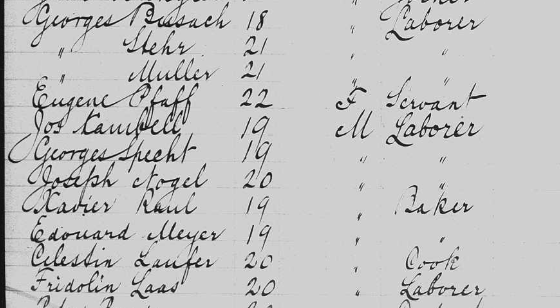 Georges Bissach 18 " Laborer
" Stehr 21 " "
" Muller 21 " "
Eugene Pfaff 22 F Servant
Jos Kambell 19 M Laborer
Georges Specht 19 " "
Joseph Nogel 20 "
Xavier Raul 19 " Baker
Edouard Meyer 19 " "
Celestin Laufer 20 " Cook
Fridolin Laas 20 " Laborer